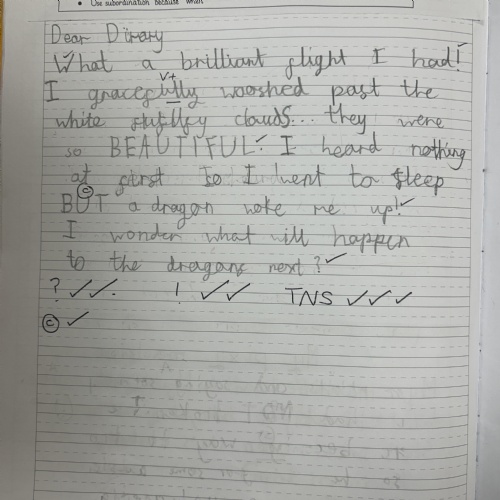 • Use subordination because when
Dear Dirary
What a brilliant flight I had!
I gracefully wooshed past the
white clouds... they were
so BEAUTIFUL. I heard nothing
at first So I went to sleep
BUT a dragon woke me up!
I wonder what will happen
to the dragons next?
? ✓✓. ! ✓✓ TNS ✓✓✓
© ✓